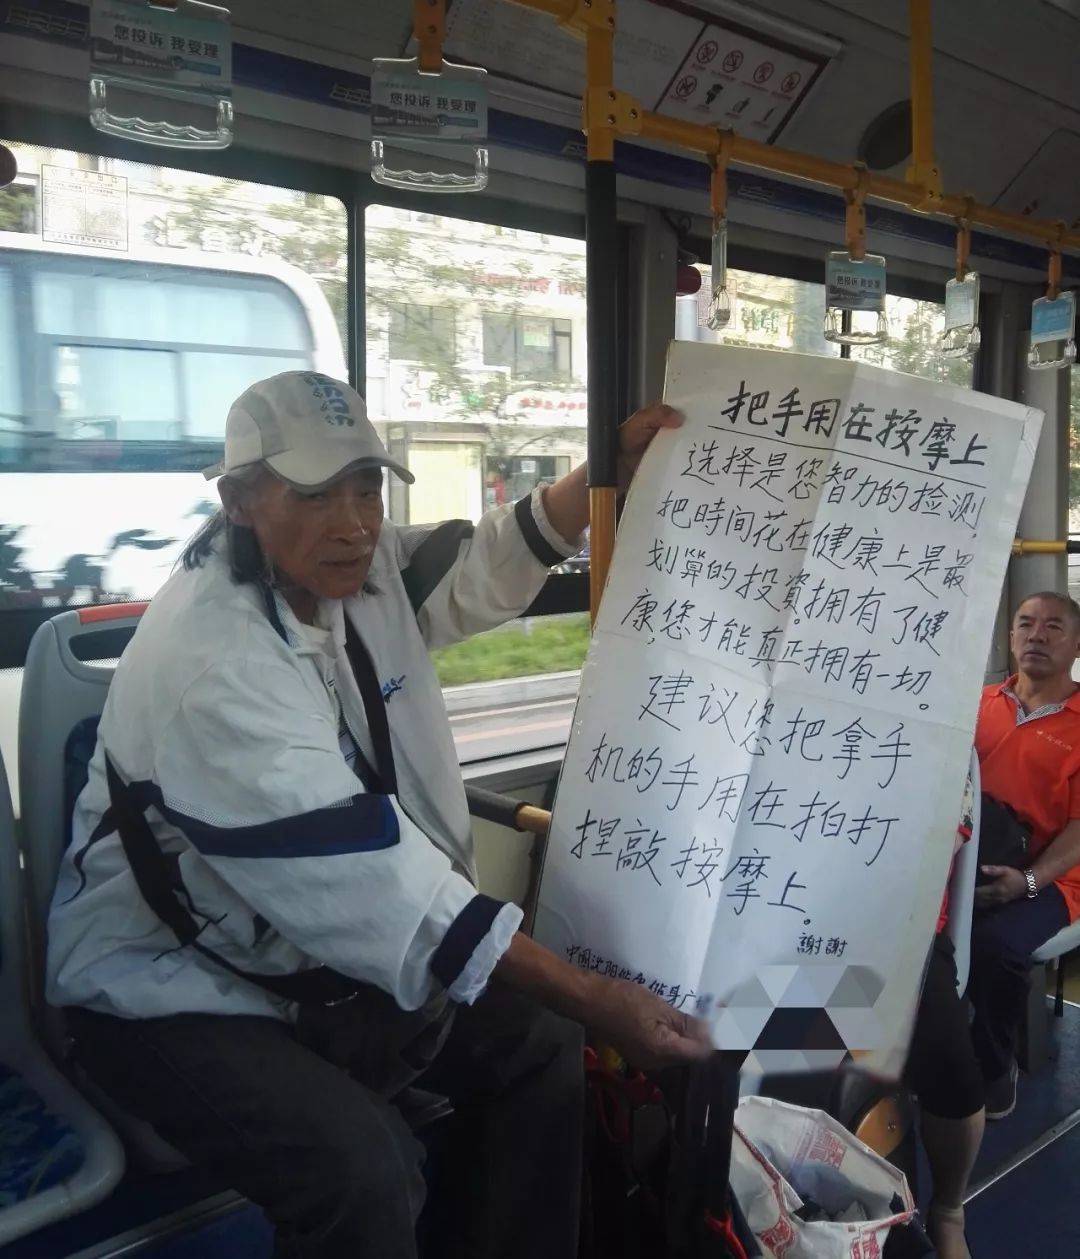 您投诉 我受理
您投诉 我受理
您投诉 我受理
把手用在按摩上
选择是您智力的捡测,
把時间花在健康上是最
划算的投資。拥有了健
康,您才能真正拥有一切。
建议您把拿手
机的手用在拍打
捏敲按摩上。
謝謝
中國沈阳
健身广